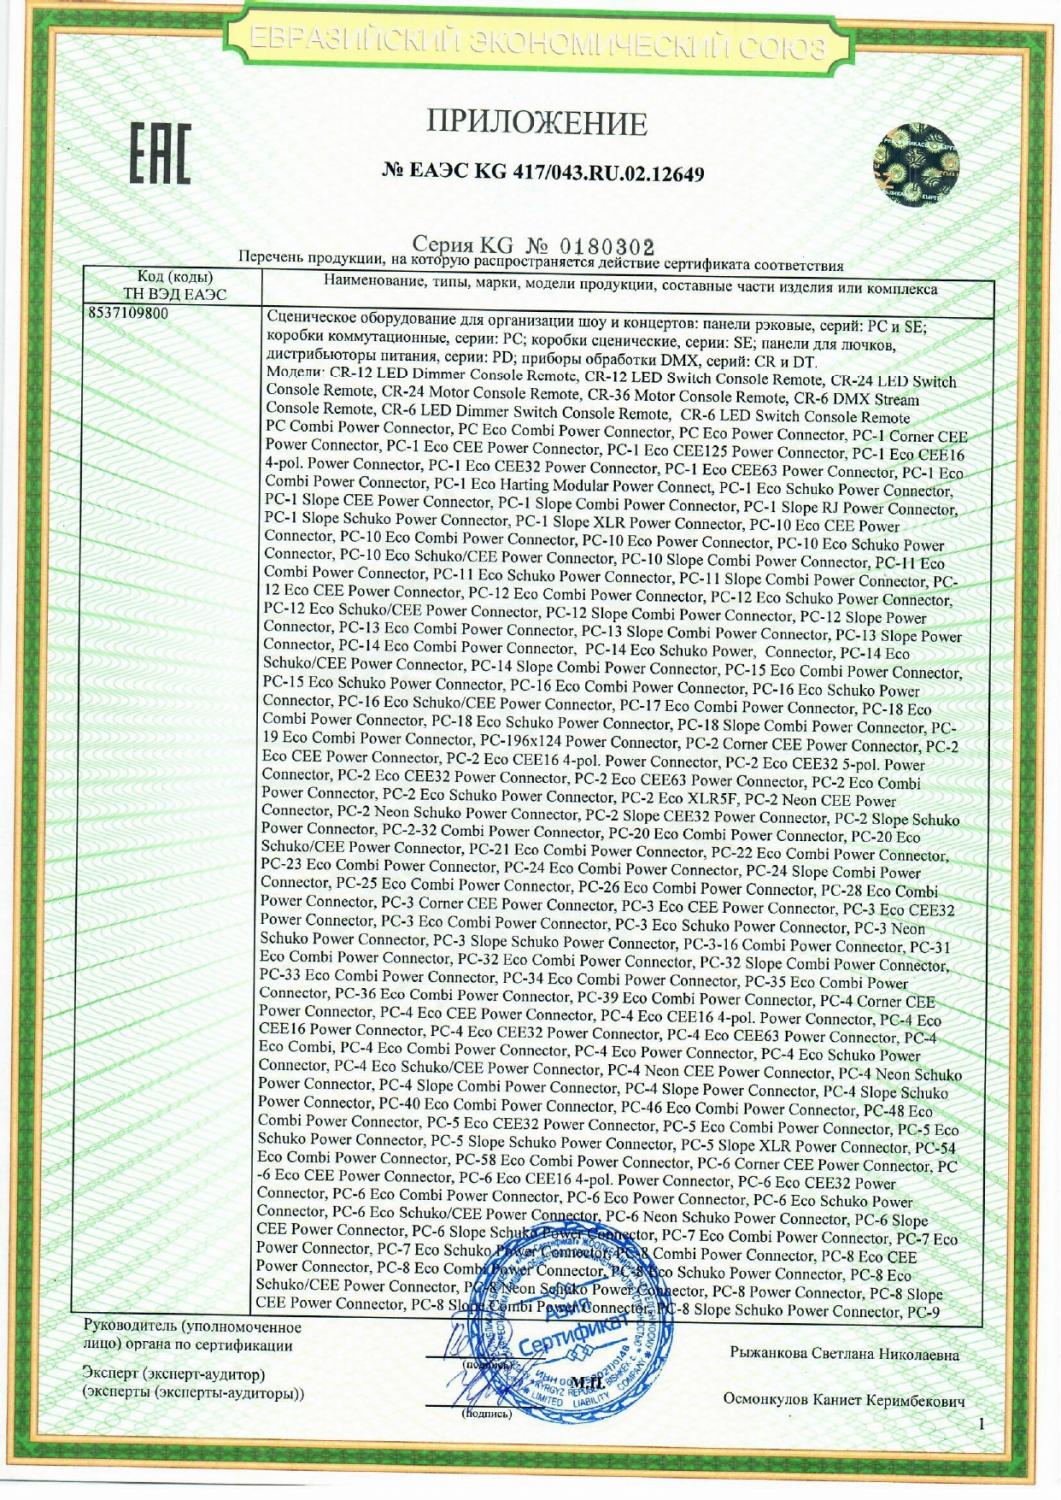 ЕВРАЗИЙСКИЙ ЭКОНОМИЧЕСКИЙ СОЮЗ
ЕАС
ПРИЛОЖЕНИЕ
№ ЕАЭС KG 417/043.RU.02.12649
Серия KG № 0180302
Перечень продукции, на которую распространяется действие сертификата соответствия
Код (коды)
ТН ВЭД ЕАЭС
Наименование, типы, марки, модели продукции, составные части изделия или комплекса
8537109800
Сценическое оборудование для организации шоу и концертов: панели рэковые, серий: PC и SE;
коробки коммутационные, серии: PC; коробки сценические, серии: SE; панели для лючков,
дистрибьюторы питания, серии: PD; приборы обработки DMX, серий: CR и DT.
Модели: CR-12 LED Dimmer Console Remote, CR-12 LED Switch Console Remote, CR-24 LED Switch
Console Remote, CR-24 Motor Console Remote, CR-36 Motor Console Remote, CR-6 DMX Stream
Console Remote, CR-6 LED Dimmer Switch Console Remote, CR-6 LED Switch Console Remote
PC Combi Power Connector, PC Eco Combi Power Connector, PC Eco Power Connector, PC-1 Corner CEE
Power Connector, PC-1 Eco CEE Power Connector, PC-1 Eco CEE125 Power Connector, PC-1 Eco CEE16
4-pol. Power Connector, PC-1 Eco CEE32 Power Connector, PC-1 Eco CEE63 Power Connector, PC-1 Eco
Combi Power Connector, PC-1 Eco Harting Modular Power Connect, PC-1 Eco Schuko Power Connector,
PC-1 Slope CEE Power Connector, PC-1 Slope Combi Power Connector, PC-1 Slope RJ Power Connector,
PC-1 Slope Schuko Power Connector, PC-1 Slope XLR Power Connector, PC-10 Eco CEE Power
Connector, PC-10 Eco Combi Power Connector, PC-10 Eco Power Connector, PC-10 Eco Schuko Power
Connector, PC-10 Eco Schuko/CEE Power Connector, PC-10 Slope Combi Power Connector, PC-11 Eco
Combi Power Connector, PC-11 Eco Schuko Power Connector, PC-11 Slope Combi Power Connector, PC-
12 Eco CEE Power Connector, PC-12 Eco Combi Power Connector, PC-12 Eco Schuko Power Connector,
PC-12 Eco Schuko/CEE Power Connector, PC-12 Slope Combi Power Connector, PC-12 Slope Power
Connector, PC-13 Eco Combi Power Connector, PC-13 Slope Combi Power Connector, PC-13 Slope Power
Connector, PC-14 Eco Combi Power Connector, PC-14 Eco Schuko Power, Connector, PC-14 Eco
Schuko/CEE Power Connector, PC-14 Slope Combi Power Connector, PC-15 Eco Combi Power Connector,
PC-15 Eco Schuko Power Connector, PC-16 Eco Combi Power Connector, PC-16 Eco Schuko Power
Connector, PC-16 Eco Schuko/CEE Power Connector, PC-17 Eco Combi Power Connector, PC-18 Eco
Combi Power Connector, PC-18 Eco Schuko Power Connector, PC-18 Slope Combi Power Connector, PC-
19 Eco Combi Power Connector, PC-196x124 Power Connector, PC-2 Corner CEE Power Connector, PC-2
Eco CEE Power Connector, PC-2 Eco CEE16 4-pol. Power Connector, PC-2 Eco CEE32 5-pol. Power
Connector, PC-2 Eco CEE32 Power Connector, PC-2 Eco CEE63 Power Connector, PC-2 Eco Combi
Power Connector, PC-2 Eco Schuko Power Connector, PC-2 Eco XLR5F, PC-2 Neon CEE Power
Connector, PC-2 Neon Schuko Power Connector, PC-2 Slope CEE32 Power Connector, PC-2 Slope Schuko
Power Connector, PC-2-32 Combi Power Connector, PC-20 Eco Combi Power Connector, PC-20 Eco
Schuko/CEE Power Connector, PC-21 Eco Combi Power Connector, PC-22 Eco Combi Power Connector,
PC-23 Eco Combi Power Connector, PC-24 Eco Combi Power Connector, PC-24 Slope Combi Power
Connector, PC-25 Eco Combi Power Connector, PC-26 Eco Combi Power Connector, PC-28 Eco Combi
Power Connector, PC-3 Corner CEE Power Connector, PC-3 Eco CEE Power Connector, PC-3 Eco CEE32
Power Connector, PC-3 Eco Combi Power Connector, PC-3 Eco Schuko Power Connector, PC-3 Neon
Schuko Power Connector, PC-3 Slope Schuko Power Connector, PC-3-16 Combi Power Connector, PC-31
Eco Combi Power Connector, PC-32 Eco Combi Power Connector, PC-32 Slope Combi Power Connector,
PC-33 Eco Combi Power Connector, PC-34 Eco Combi Power Connector, PC-35 Eco Combi Power
Connector, PC-36 Eco Combi Power Connector, PC-39 Eco Combi Power Connector, PC-4 Corner CEE
Power Connector, PC-4 Eco CEE Power Connector, PC-4 Eco CEE16 4-pol. Power Connector, PC-4 Eco
CEE16 Power Connector, PC-4 Eco CEE32 Power Connector, PC-4 Eco CEE63 Power Connector, PC-4
Eco Combi, PC-4 Eco Combi Power Connector, PC-4 Eco Power Connector, PC-4 Eco Schuko Power
Connector, PC-4 Eco Schuko/CEE Power Connector, PC-4 Neon CEE Power Connector, PC-4 Neon Schuko
Power Connector, PC-4 Slope Combi Power Connector, PC-4 Slope Power Connector, PC-4 Slope Schuko
Power Connector, PC-40 Eco Combi Power Connector, PC-46 Eco Combi Power Connector, PC-48 Eco
Combi Power Connector, PC-5 Eco CEE32 Power Connector, PC-5 Eco Combi Power Connector, PC-5 Eco
Schuko Power Connector, PC-5 Slope Schuko Power Connector, PC-5 Slope XLR Power Connector, PC-54
Eco Combi Power Connector, PC-58 Eco Combi Power Connector, PC-6 Corner CEE Power Connector, PC
-6 Eco CEE Power Connector, PC-6 Eco CEE16 4-pol. Power Connector, PC-6 Eco CEE32 Power
Connector, PC-6 Eco Combi Power Connector, PC-6 Eco Power Connector, PC-6 Eco Schuko Power
Connector, PC-6 Eco Schuko/CEE Power Connector, PC-6 Neon Schuko Power Connector, PC-6 Slope
CEE Power Connector, PC-6 Slope Schuko Power Connector, PC-7 Eco Combi Power Connector, PC-7 Eco
Power Connector, PC-7 Eco Schuko Power Connector, PC-8 Combi Power Connector, PC-8 Eco CEE
Power Connector, PC-8 Eco Combi Power Connector, PC-8 Eco Schuko Power Connector, PC-8 Eco
Schuko/CEE Power Connector, PC-8 Neon Schuko Power Connector, PC-8 Power Connector, PC-8 Slope
CEE Power Connector, PC-8 Slope Combi Power Connector, PC-8 Slope Schuko Power Connector, PC-9
Руководитель (уполномоченное
лицо) органа по сертификации
(подпись)
Рыжанкова Светлана Николаевна
АЗИЯ
Сертификат
KYRGYZ REPUBLIC, BISHKEY C.
LIMITED LIABILITY COMPANY
М.П.
Эксперт (эксперт-аудитор)
(эксперты (эксперты-аудиторы))
(подпись)
Осмонкулов Канист Керимбекович
1